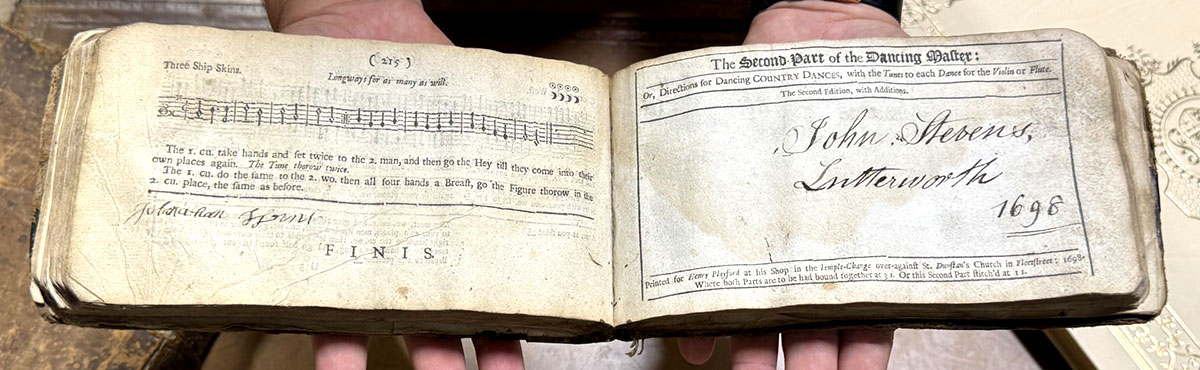 ( 215 )
Three Ship Skins.
Longways for as many as will.
The 1. cu. take hands and ſet twice to the 2. man, and then go the Hey till they come into their
own places again. The Tune thorow twice.
The 1. cu. do the ſame to the 2. wo. then all four hands a Breaſt, go the Figure thorow in the
2. cu. place, the ſame as before.
FINIS.
The Second Part of the Dancing Maſter:
Or, Directions for Dancing COUNTRY DANCES, with the Tunes to each Dance for the Violin or Flute.
The Second Edition, with Additions.
John Stevens,
Lutterworth
1698
Printed for Henry Playford at his Shop in the Temple-Change over-againſt St. Dunſtan's Church in Fleetſtreet; 1698.
Where both Parts are to be had bound together at 3 s. Or this Second Part ſtitch'd at 1 s.